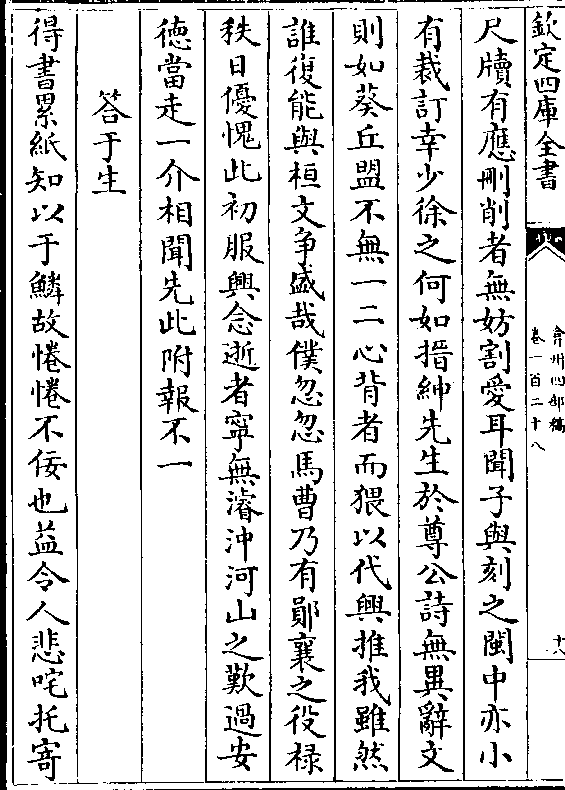 欽定四庫全書
弇州四部稿
卷一百二十八
十八
尺牘有應刪削者無妨割愛耳聞子與刻之閩中亦小
有裁訂幸少徐之何如搢紳先生於尊公詩無異辭文
則如葵丘盟不無一二心背者而猥以代興推我雖然
誰復能與桓文争盛哉僕忽忽馬曹乃有鄖襄之役禄
秩日優愧此初服興念逝者寧無濬沖河山之歎過安
徳當走一介相聞先此附報不一
答于生
得書累紙知以于鱗故惓惓不佞也益令人悲咤托寄